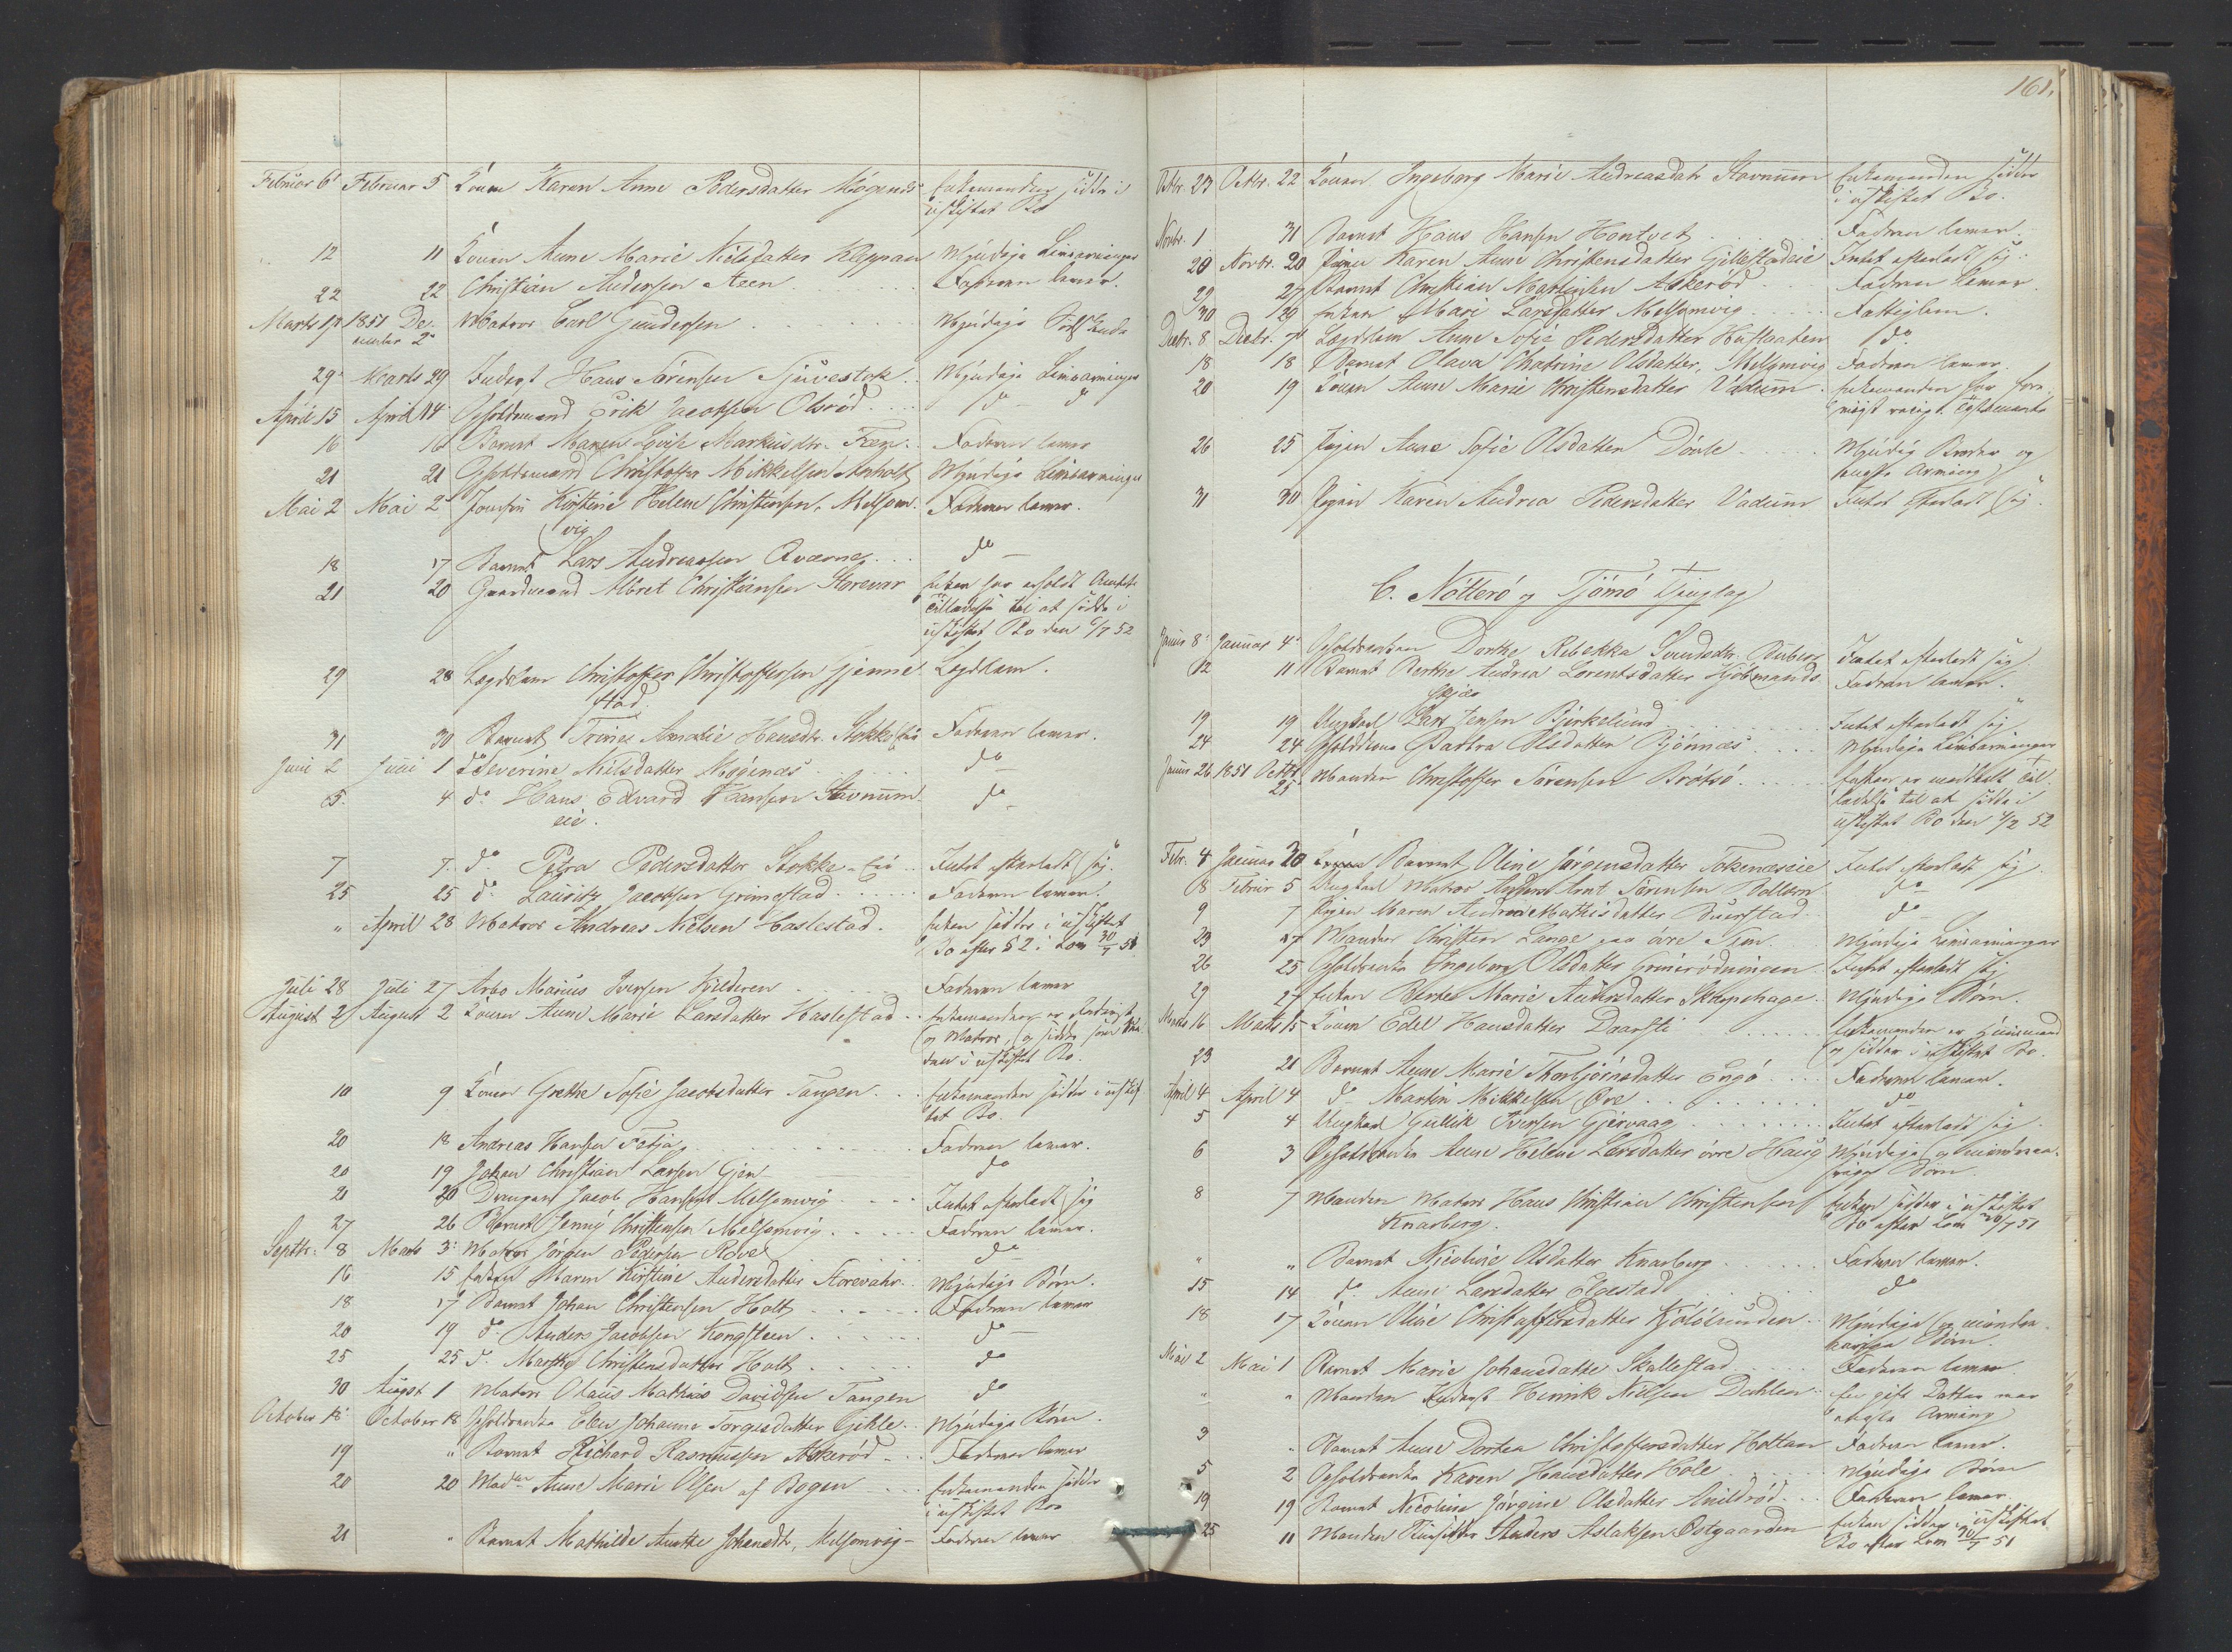 161.
Februar 6 Februar 5 Konen Karen Anne Pedersdatter Møgenæs Enkemanden sidder i
uskiftet Bo
12 11 Konen Anne Marie Nielsdatter Kleppan Myndige Livsarvinger
22 22 Christian Andersen Steen Faderen lever.
Marts 17 1851 De- Matros Carl Gundersen Myndige
cember 2
29 Marts 29 Inderst Hans Sørensen Myndige Livsarvinger
April 15 April 14 Opholdsmand Erik Jacobsen Olsrød do do
16 16 Barnet Maren Lovise Markusdtr. Faderen lever
21 21 Opholdsmand Christoffer Mikkelsen Myndige Livsarvinger
Mai 2 Mai 2 Kirstine Helene Christensen, Melsom- Faderen lever.
vig
18 17 Barnet Lars Andreassen Qværne do
21 20 Gaardmand Albret Christiansen Storevar Enken har erholdt Amtets
Tilladelse til at sidde i
uskiftet Bo den 6/7 52
29 28 Lægdslem Christoffer Christoffersen Gjenne- Lægdslem.
stad.
31 30 Barnet Trine Amalie Hansdtr. Stokke Faderen lever.
Juni 2 Juni 1 do Severine Nielsdatter Møgenæs do
5 4 do Hans Edvard Hansen Stavnum- do
eie.
7 7 do Petra Pedersdatter Stokke-Eie Intet efterladt sig.
25 25 do Lauritz Jacobsen Grimestad Faderen lever.
" April 28 Matros Andreas Nielsen Haslestad. Enken sidder i uskiftet
Bo efter § 2 i Lov 30/7 51
Juli 28 Juli 27 Arbo Marius Iversen Kilderen Faderen lever
August 2 August 2 Konen Anne Marie Larsdatter Haslestad Enkemanden er
og Matros, og sidder som
i uskiftet Bo.
10 9 Konen Grethe Sofie Jacobsdatter Tangen Enkemanden sidder i uskif-
tet Bo.
20 18 Andreas Hansen Faderen lever.
20 19 Johan Christian Larsen Gjen do
21 20 Jacob Hansen Melsomvig Intet efterladt sig
27 26 Barnet Jenny Christensen Melsomvig Faderen lever.
Septbr. 8 Marts 3 Matros Jørgen Pedersen Røvel do
16 15 Enken Maren Kirstine Andersdatter Storevahr Myndige Børn.
18 17 Barnet Johan Christensen Holt Faderen lever
20 19 do Anders Jacobsen Kongsteen do
25 25 do Marthe Christensdatter Holt do
30 August 1 Matros Olaus Mathias Davidsen Tangen do
October 18 October 18 Opholdsenke Elen Johanne Torgersdatter Gjehle Myndige Børn.
19 " Barnet Richard Rasmussen Askerød Faderen lever
20 20 Anne Marie Olsen af Bogen Enkemanden sidder
i uskiftet Bo
21 " Barnet Mathilde Anette Johansdtr., Melsomvig Faderen lever
Octbr. 23 Octbr. 22 Konen Ingeborg Marie Andreasdatr Stavnum Enkemanden sidder
i uskiftet Bo.
Novbr. 1 31 Barnet Hans Hansen Hontvet Faderen lever.
20 Novbr. 20 Pigen Karen Anne Christensdatter Gillestadeie Intet efterladt sig.
29 27 Barnet Christian Martinsen Askerød Faderen lever.
30 29 Enken Mari Larsdatter Melsomvig Fattiglem.
Decbr. 8 Decbr. 7 Lægdslem Anne Sofie Pedersdatter do
18 18 Barnet Olava Chatrine Olsdatter, Melsomvig Faderen lever.
20 19 Konen Anne Marie Christensdatter Vadum Enkemanden har
Testamente
26 25 Pigen Anne Sofie Olsdatter Døvle Myndig Broder og
eneste Arving
31 30 Pigen Karen Andrea Pedersdatter Vadum Intet efterladt sig.
C. Nøtterø og Tjømø Tinglag
Januar 8 Januar 4 Opholdsenken Dorthe Rebekka Buberg Intet efterladt sig
12 11 Barnet Berthe Andrea Lorentsdatter Kjøbmands- Faderen lever.
skjær
19 19 Ungkarl Lars Jensen Bjerkelund Intet efterladt sig
24 24 Olsdatter Bjønnæs Myndige Livsarvinger
Januar 26 1851 Octbr. Manden Christoffer Sørensen Brøtsø Enken er meddeelt Til-
25 ladelse til at sidde i
uskiftet Bo den 4/2 52
Febr. 4 Januar 30 Barnet Oline Jørgensdatter Tokenæseie Intet efterladt sig.
8 Februar 5 Ungkarl Matros Sørensen do
9 7 Pigen Maren Andrea Mathisdatter Buerstad do
23 17 Manden Christen Lange paa øvre Teen Myndige Livsarvinger
26 25 Opholdsenke Ingeborg Olsdatter Grinerødningen Intet efterladt sig
29 27 Enken Berthe Marie Andersdatter Skarphage Myndige Børn.
Marts 16 Marts 15 Konen Edel Hansdatter Enkemanden er
og sidder i uskiftet Bo.
23 21 Barnet Anne Marie Thorbjørnsdatter Engø Faderen lever.
April 4 April 4 do Martin Mikkelsen Øre do
5 4 Ungkarl Gullik Iversen Gjervaag Intet efterladt sig.
6 3 Opholdsenke Anne Helene Larsdatter øvre Haug Myndige og mindreaa-
rige Børn.
8 7 Manden Matros Hans Christian Christensen Enken sidder i uskiftet
Knarberg. Bo efter Lov 30/7 51
" " Barnet Nicoline Olsdatter Knarberg Faderen lever.
15 14 do Anne Larsdatter Elgestad do
18 17 Konen Oline Christoffersdatter Myndige og mindre-
aarige Børn.
Mai 2 Mai 1 Barnet Marie Johansdatter Skallestad Faderen lever
" " Manden Inderst Henrik Nielsen Dahlen En gift Datter var
eneste Arving
3 " Barnet Anne Dortea Christoffersdatter Holtan Faderen lever.
5 2 Opholdsenke Karen Hansdatter Hole Myndige Børn
19 19 Barnet Nicoline Jørgine Olsdatter Arildrød Faderen lever.
25 11 Manden Anders Aslaksen Østgaarden Enken sidder i uskiftet
Bo efter Lov 30/7 51